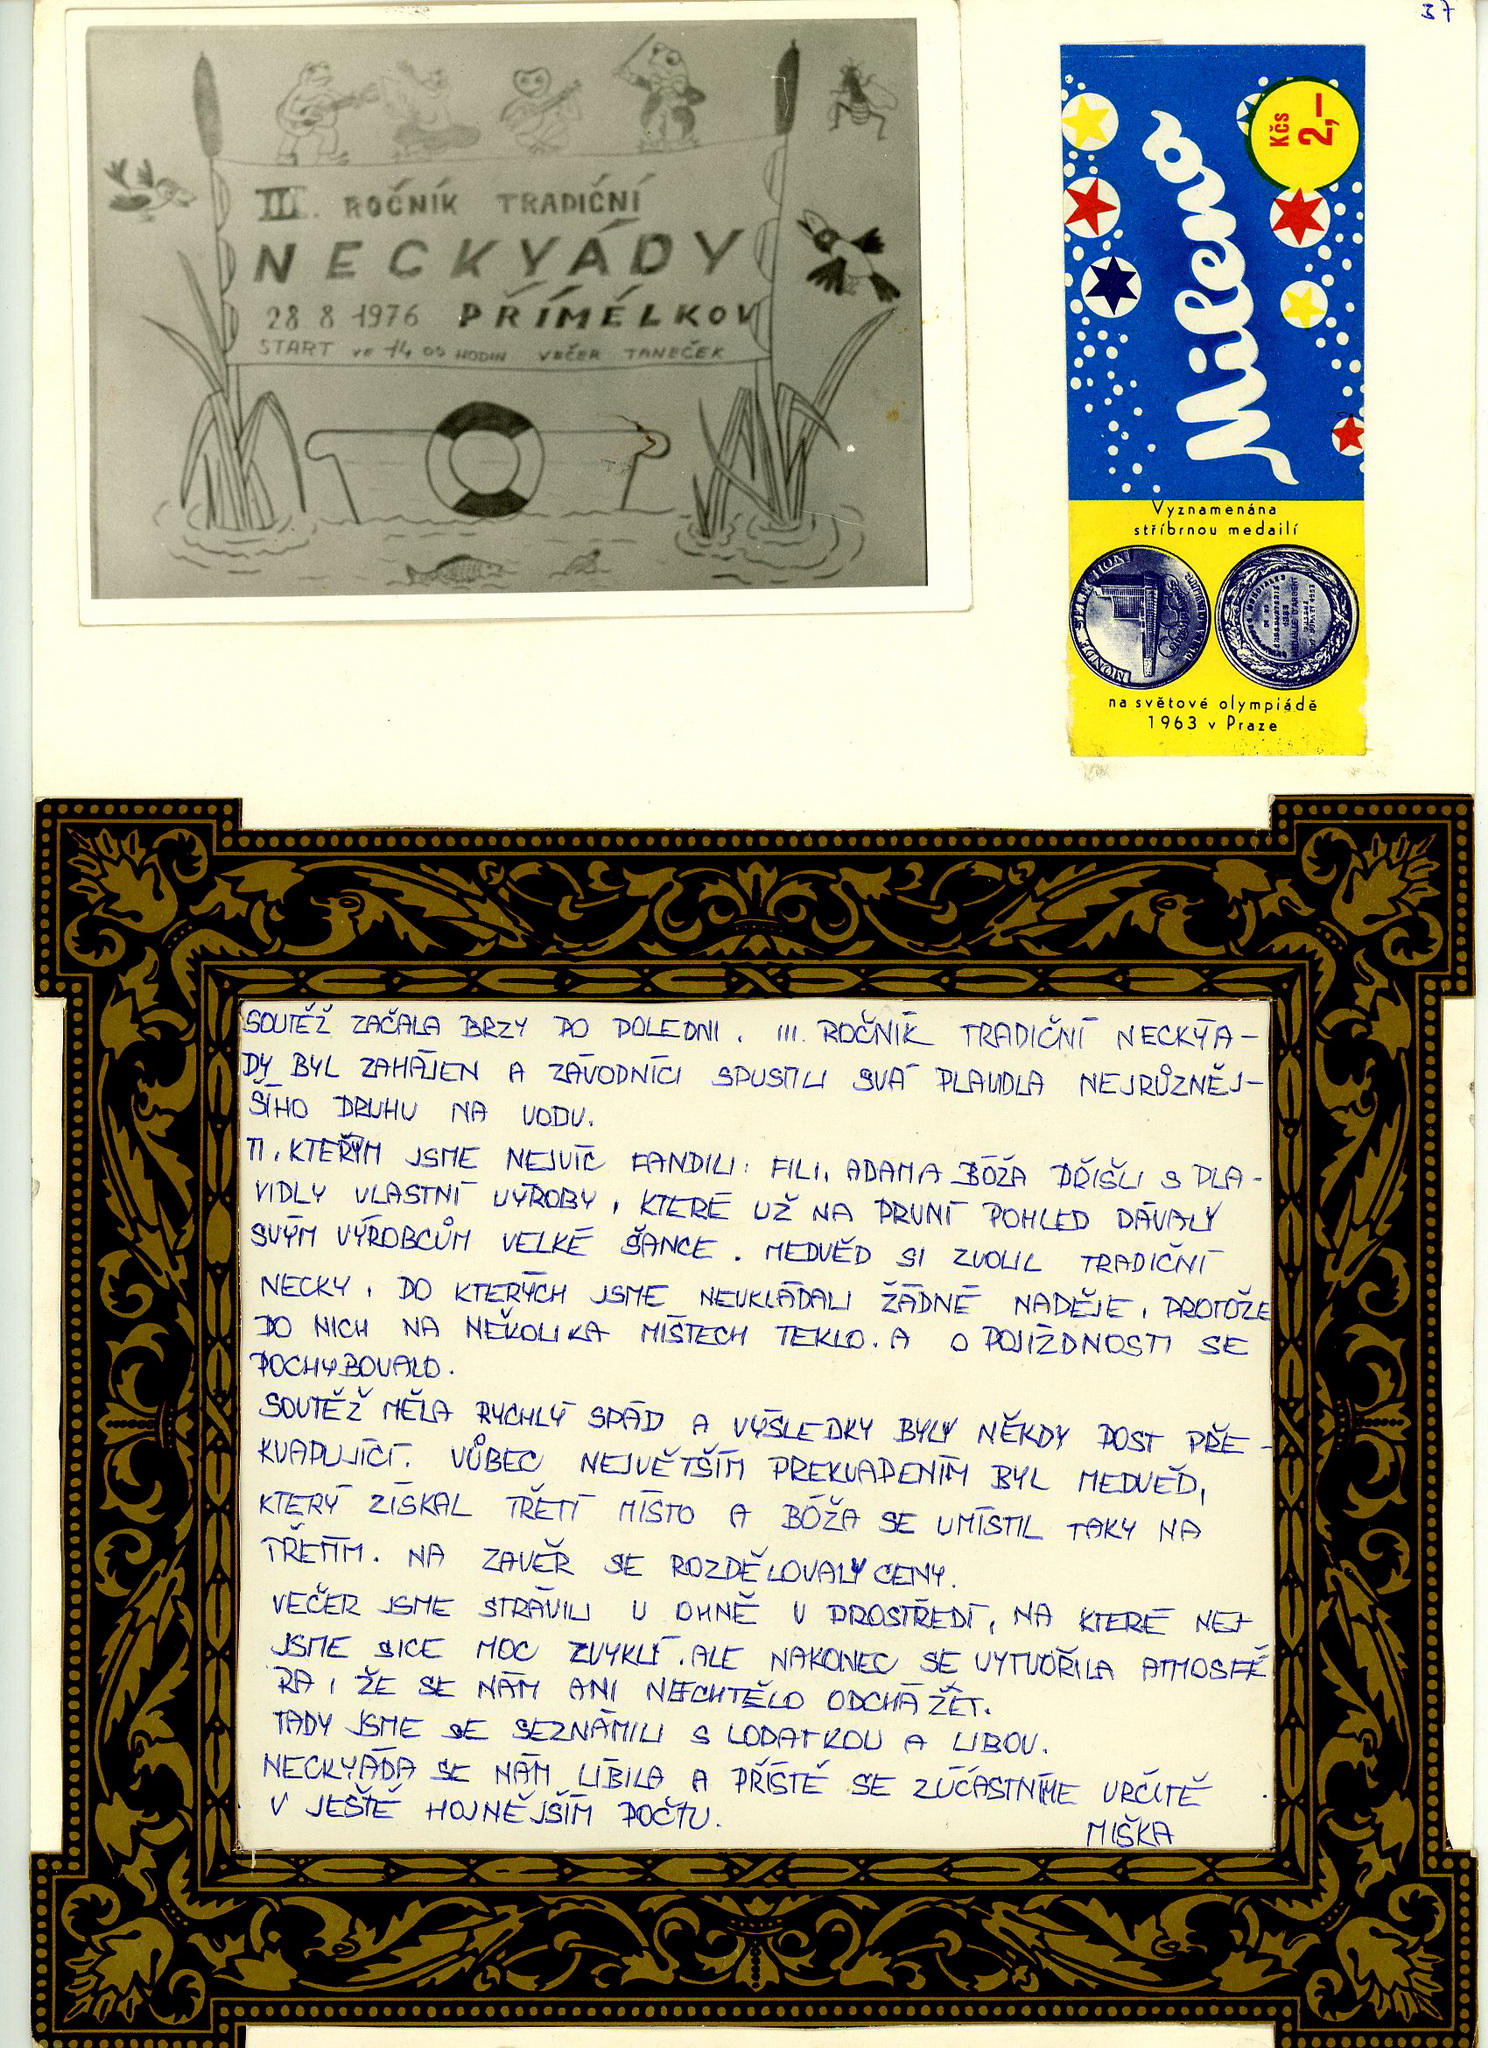 37
III. ROČNÍK TRADIČNÍ
NECKYÁDY
28 8 1976 PŘÍMĚLKOV
START VE 14 00 HODIN VEČER TANEČEK
Kčs
2,-
Milena
Vyznamenána
stříbrnou medailí
MONDE SELECTION
na světové olympiádě
1963 v Praze
SOUTĚŽ ZAČALA BRZY PO POLEDNI. III. ROČNÍK TRADIČNÍ NECKYÁ-
DY BYL ZAHÁJEN A ZÁVODNÍCI SPUSTILI SVÁ PLAVIDLA NEJRŮZNĚJ-
ŠÍHO DRUHU NA VODU.
TI, KTERÝM JSME NEJVÍC FANDILI: FILI, ADAM A BÓŽA PŘIŠLI S PLA-
VIDLY VLASTNÍ VÝROBY, KTERÉ UŽ NA PRVNÍ POHLED DÁVALY
SVÝM VÝROBCŮM VELKÉ ŠANCE. MEDVĚD SI ZVOLIL TRADIČNÍ
NECKY, DO KTERÝCH JSME NEVKLÁDALI ŽÁDNÉ NADĚJE, PROTOŽE
DO NICH NA NĚKOLIKA MÍSTECH TEKLO. A O POJÍZDNOSTI SE
POCHYBOVALO.
SOUTĚŽ MĚLA RYCHLÝ SPÁD A VÝSLEDKY BYLY NĚKDY DOST PŘE-
KVAPUJÍCÍ. VŮBEC NEJVĚTŠÍM PREKVAPENÍM BYL MEDVĚD,
KTERÝ ZÍSKAL TŘETÍ MÍSTO A BÓŽA SE UMÍSTIL TAKY NA
TŘETÍM. NA ZÁVĚR SE ROZDĚLOVALY CENY.
VEČER JSME STRÁVILI U OHNĚ V PROSTŘEDÍ, NA KTERÉ NEJ-
JSME SICE MOC ZVYKLÍ. ALE NAKONEC SE VYTVOŘILA ATMOSFÉ
RA, ŽE SE NÁM ANI NECHTĚLO ODCHÁZET.
TADY JSME SE SEZNÁMILI S LOPATKOU A LIBOU.
NECKYÁDA SE NÁM LÍBILA A PŘÍŠTĚ SE ZÚČASTNÍME URČITĚ
V JEŠTĚ HOJNĚJŠÍM POČTU.
MIŠKA